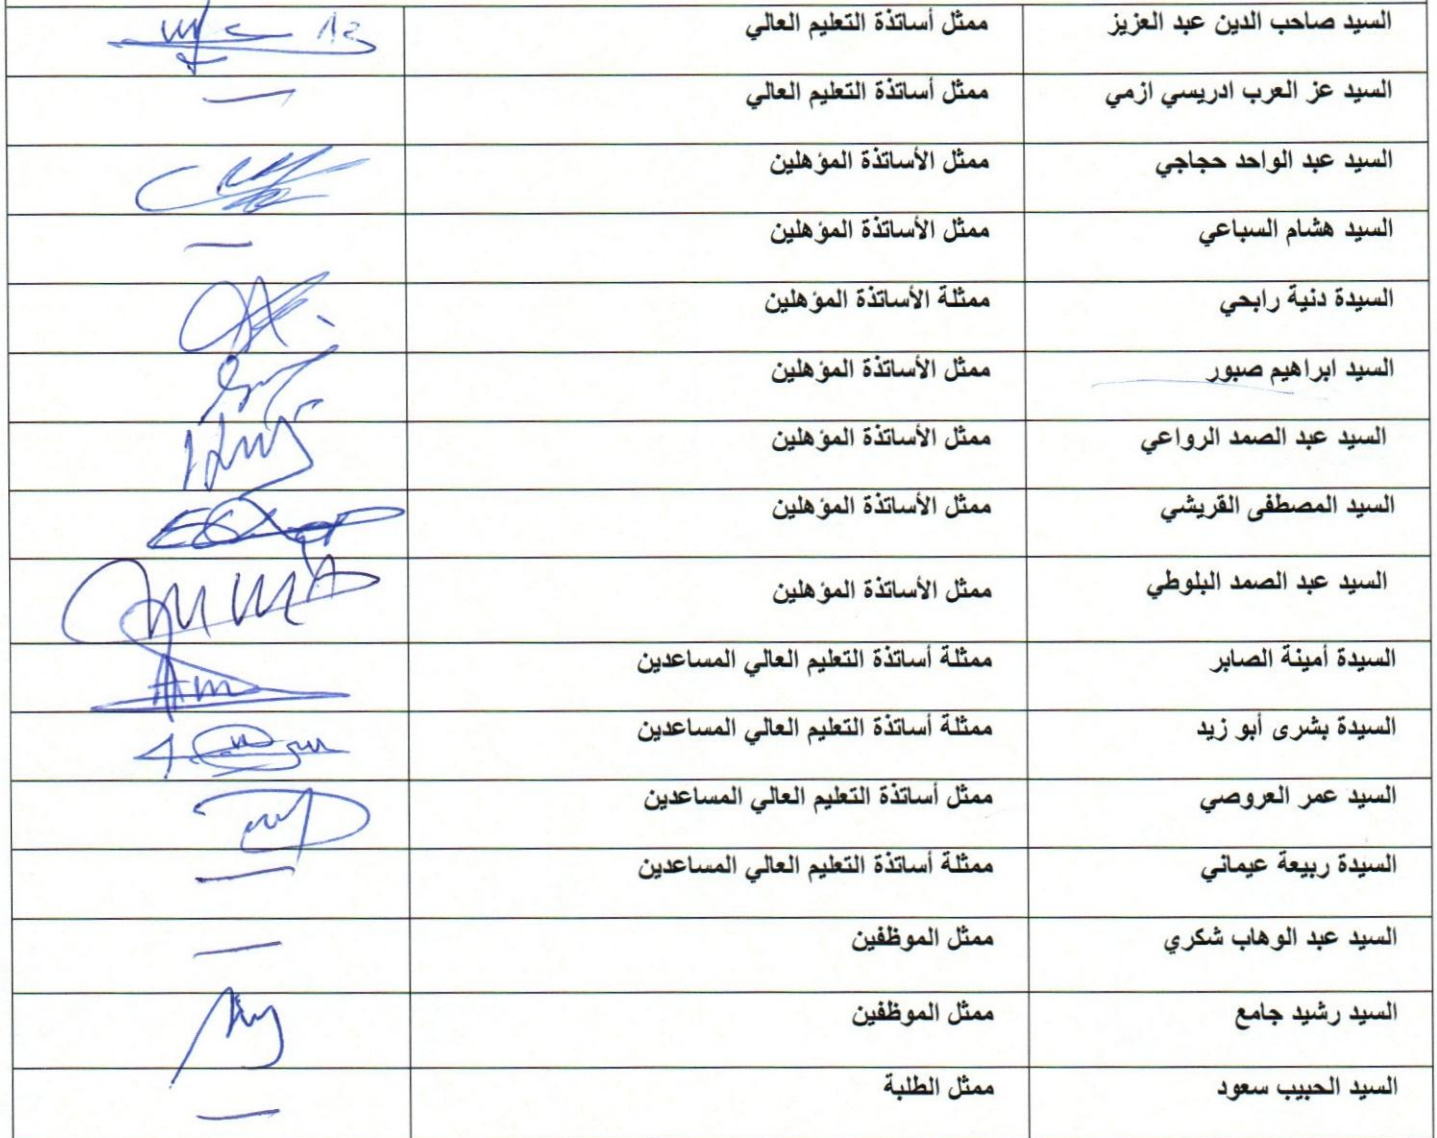 السيد صاحب الدين عبد العزيز ممثل أساتذة التعليم العالي
السيد عز العرب ادريسي ازمي ممثل أساتذة التعليم العالي
السيد عبد الواحد حجاجي ممثل الأساتذة المؤهلين
السيد هشام السباعي ممثل الأساتذة المؤهلين
السيدة دنية رابحي ممثلة الأساتذة المؤهلين
السيد ابراهيم صبور ممثل الأساتذة المؤهلين
السيد عبد الصمد الرواعي ممثل الأساتذة المؤهلين
السيد المصطفى القريشي ممثل الأساتذة المؤهلين
السيد عبد الصمد البلوطي ممثل الأساتذة المؤهلين
السيدة أمينة الصابر ممثلة أساتذة التعليم العالي المساعدين
السيدة بشرى أبو زيد ممثلة أساتذة التعليم العالي المساعدين
السيد عمر العروصي ممثل أساتذة التعليم العالي المساعدين
السيدة ربيعة عيماني ممثلة أساتذة التعليم العالي المساعدين
السيد عبد الوهاب شكري ممثل الموظفين
السيد رشيد جامع ممثل الموظفين
السيد الحبيب سعود ممثل الطلبة